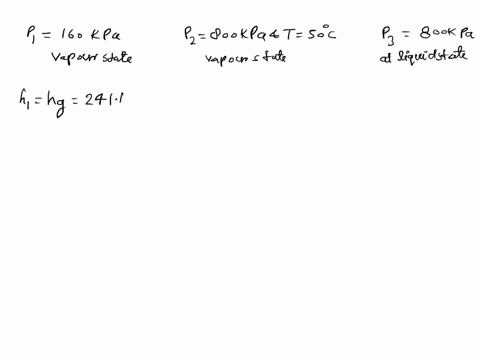 P₁ = 160 KPa
vapour state
P₂ = 800 KPa & T = 50°C
vapour state
P₃ = 800 KPa
at liquid state
h₁ = hg = 241.1